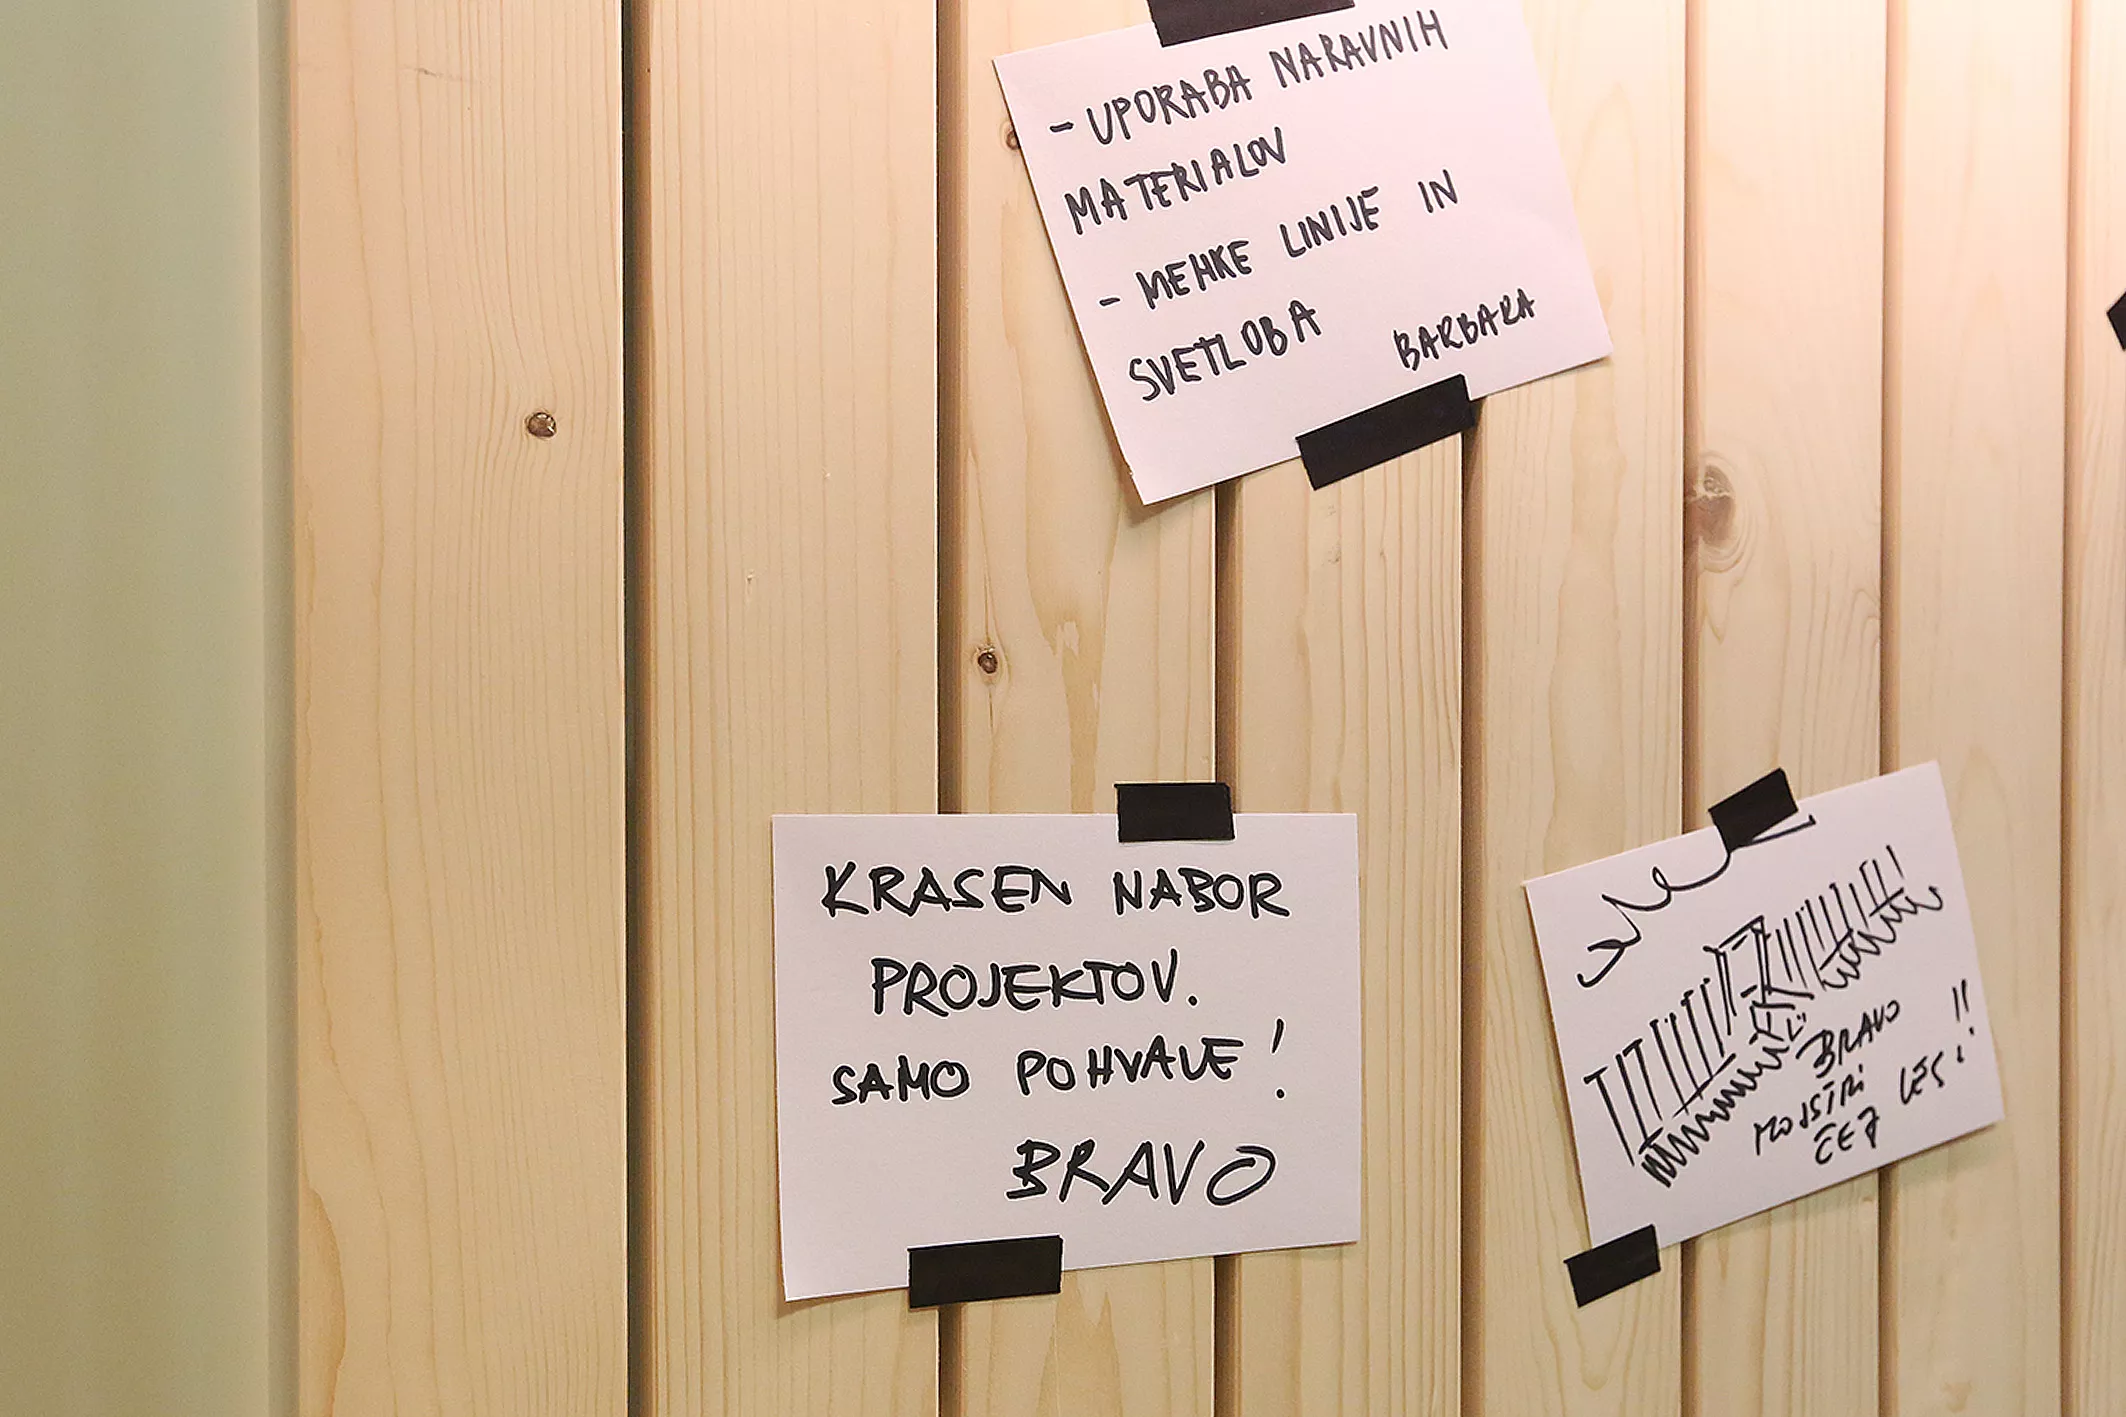 - UPORABA NARAVNIH
MATERIALOV
- MEHKE LINIJE IN
SVETLOBA
BARBARA
KRASEN NABOR
PROJEKTOV.
SAMO POHVALE!
BRAVO
BRAVO
MOJSTRI
ČEZ LES!!